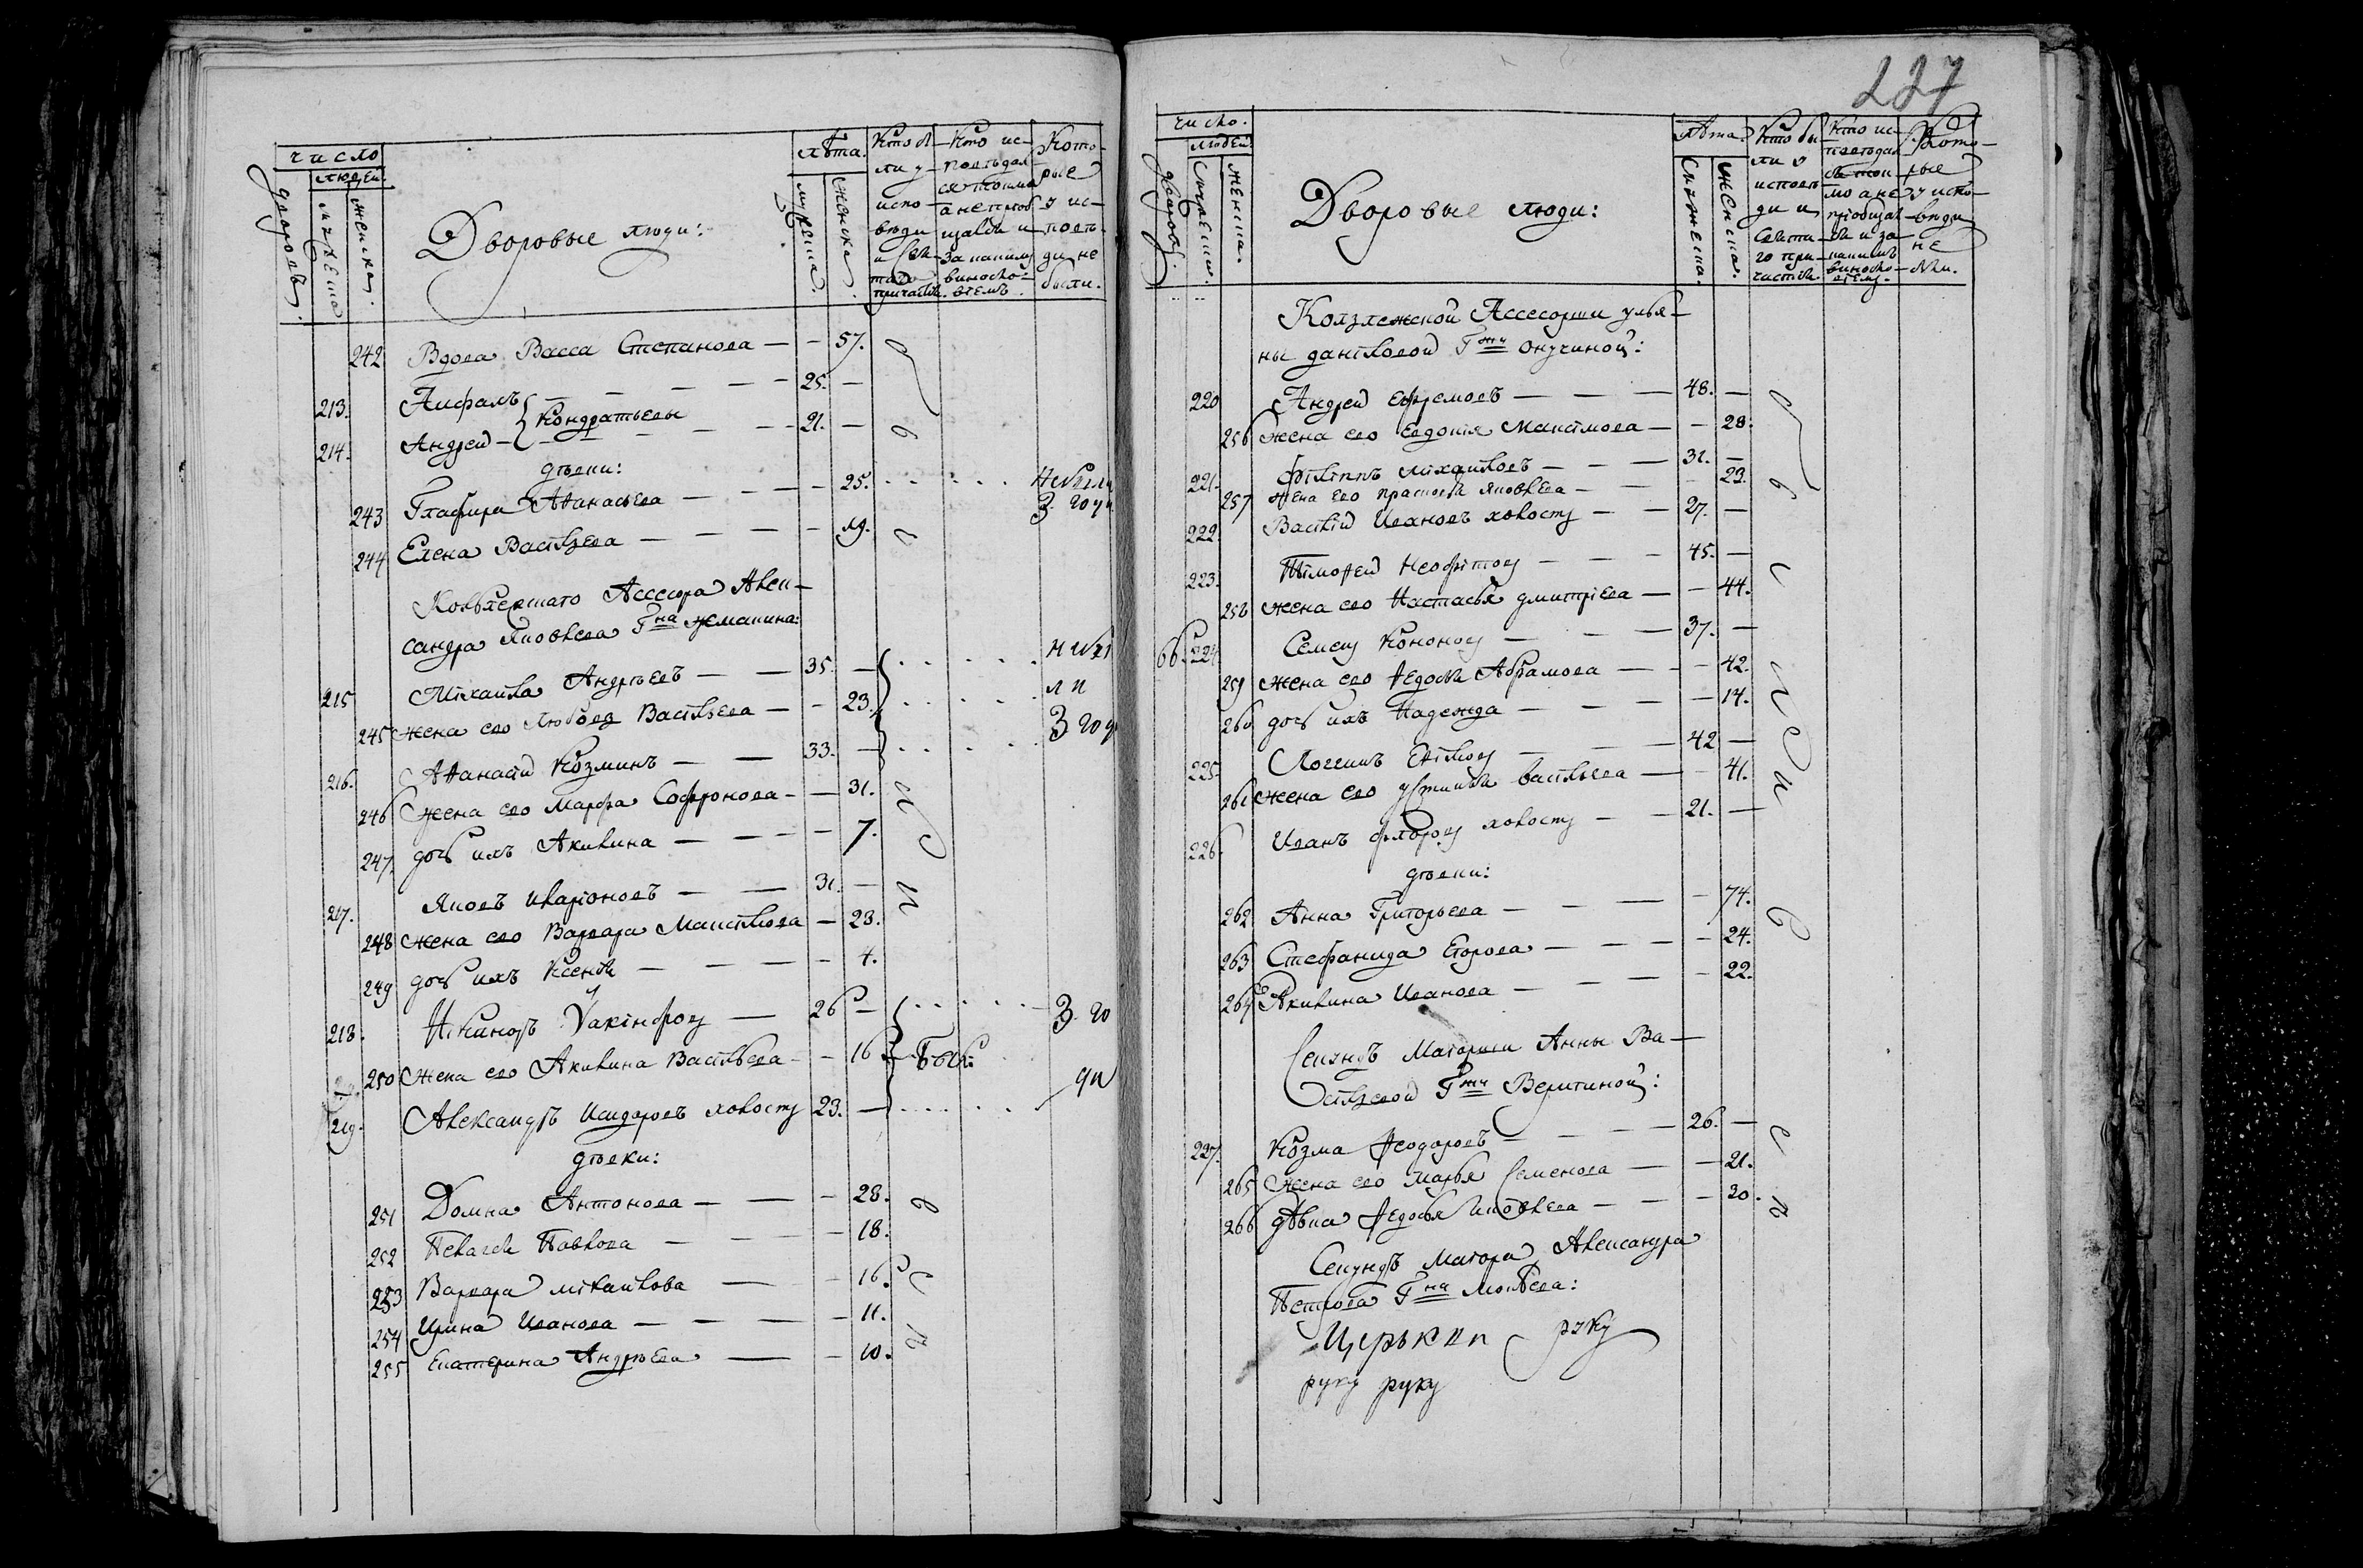 число
людей
дворовъ.
мужеска
женска.
Дворовые люди:
лѣта.
мужеска.
женска.
Кто бы-
ли у
испо-
вѣди
и свя-
таго
причастія.
Кто ис-
поведал
ся токмо
а не приоб
щался и
за какимъ
виносло-
віемъ.
Кото-
рые
у ис-
повѣ-
ди не
были.
242 Вдова Васса Степанова — — 57.
213. Анфалъ — — — — 25. —
Кондратьевы
214. Андрей — — — — 21. —
дѣвки:
243 Глафира Аѳанасьева — — — 25. Небыли
3. году
244 Елена Васильева — — — —
Коллежскаго Ассесора Алек-
сандра Яковлева Гна
215 Михаила Андрѣевъ — — 35. —
245 жена ево Любовь Васильева — — 23.
3 год
216. Аѳанасій Козминъ — — 33. —
246 жена ево Марфа Софронова — — 31.
247. дочь ихъ Акилина — — — 7.
217. Яковъ Иларіоновъ — — 31. —
248 жена ево Варвара Максимова — 23.
249 дочь ихъ Ксенія — — — 4.
218. 26 —
3. го
250 жена ево Акилина Васильева — — 16 — была
219. Александръ Исидоровъ холостъ 23. —
ды
дѣвки:
251 Домна Антонова — — — 28.
252 Пелагея Павлова — — — 18.
253 Варвара Михаилова — — 16.
254 Ирина Иванова — — — 11.
255 Екатерина Андрѣева — — 10.
227
число.
людей.
дворовъ.
мужеска.
женска.
Дворовые люди:
лѣта.
мужеска.
женска.
Кто бы
ли у
исповѣ
ди и
святаго при
частія.
Кто ис-
поведал
ся ток
мо а не
приобщал
ся и за
какимъ
виносло
віемъ.
Кото-
рые
у испо-
вѣди
не
были.
Коллежской Ассесорши улья-
ны даниловой Гжи Онучиной:
220 Андрей Ефремовъ — — — 48. —
256 жена ево Евдокія Максимова — — 28.
221. Филиппъ Михаиловъ — — — 31. —
257 жена ево Прасковья Яковлева — — 23.
222. Василій Ивановъ холостъ — — 27. —
223. Тимоѳей Неофитовъ — — — 45. —
258 жена ево Настасья дмитріева — — 44.
66. 224. Семенъ Кононовъ — — — 37. —
259 жена ево Ѳедосья Абрамова — — 42.
260 дочь ихъ Надежда — — — — 14.
225. Логгинъ — — — 42 —
261 жена ево устинья васильева — — 41.
226. Иванъ флоровъ холостъ — — 21. —
дѣвки:
262 Анна Григорьева — — — — 74.
263 Стефанида Егорова — — — — 24.
264 Акилина Иванова — — — — 22.
Секундъ Маіорши Анны Ва-
сильевой Гжи Веригиной:
227. Козма Ѳеодоровъ — — — 26. —
265 жена ево Марья Семенова — — 21.
266 дѣвка Ѳедосья Яковлева — — — 20.
Секундъ Маіора Александра
Петрова Гна
руку
руку руку